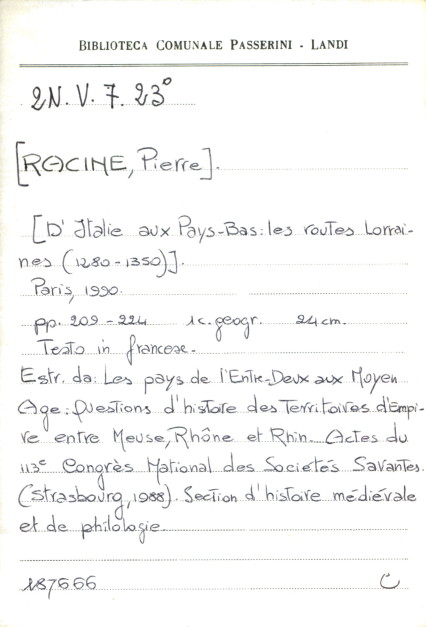 BIBLIOTECA COMUNALE PASSERINI - LANDI
2N. V. 7. 23°
[RACINE, Pierre].
[D' Italie aux Pays-Bas: les routes Lorrai-
nes (1280-1350)].
Paris, 1990.
pp. 209-224 1 c. geogr. 24 cm.
Testo in francese.
Estr. da: Les pays de l'Entre-Deux aux Moyen
Age: Questions d'histoire des Territoires d'Empi-
re entre Meuse, Rhône et Rhin. Actes du
113e Congrès National des Societés Savantes.
(Strasbourg, 1988). Section d'histoire médiévale
et de philologie.
187666 C